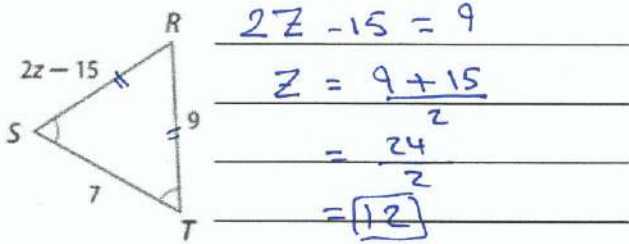 R
2z – 15
S
9
7
T
2Z - 15 = 9
Z = 9 + 15
2
= 24
2
= 12